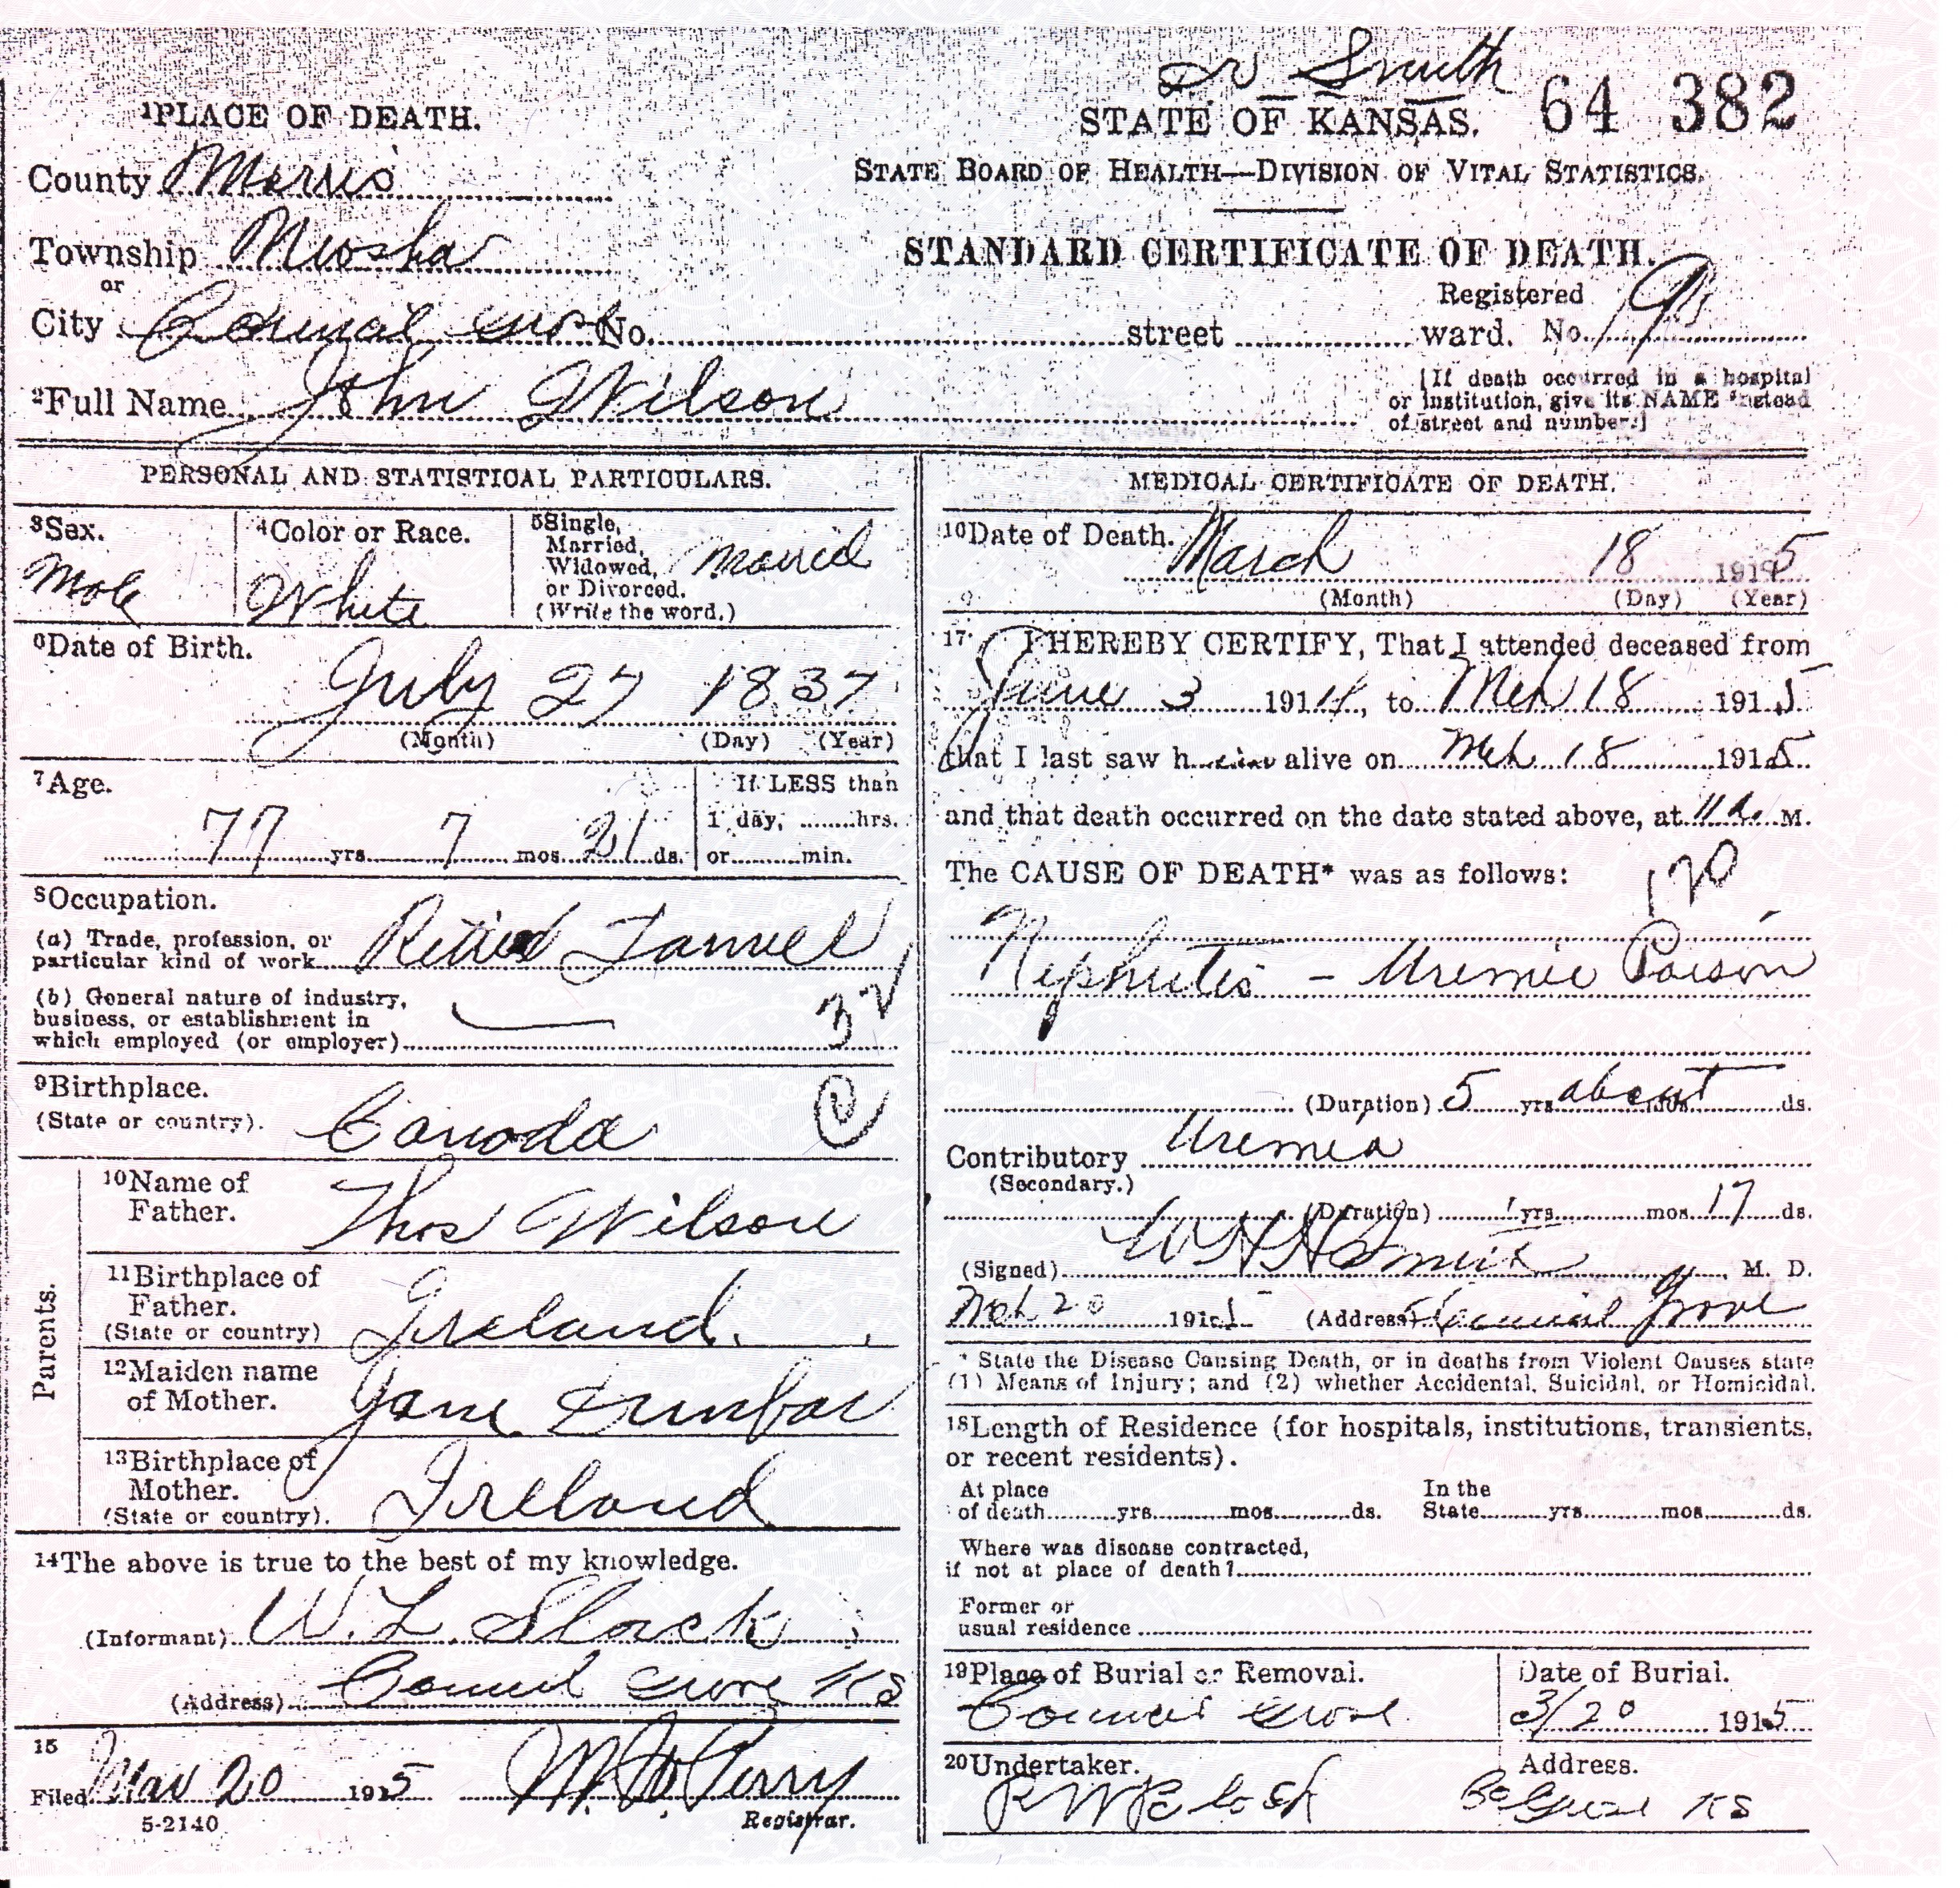 Dr Smith
1PLACE OF DEATH.
STATE OF KANSAS. 64 382
County Morris
STATE BOARD OF HEALTH—DIVISION OF VITAL STATISTICS.
Township Neosho
STANDARD CERTIFICATE OF DEATH.
or
City Council Grove No. street ward. Registered No.
2Full Name John Wilson
[If death occurred in a hospital
or institution, give its NAME instead
of street and number.]
PERSONAL AND STATISTICAL PARTICULARS.
3Sex. Male
4Color or Race. White
5Single,
Married,
Widowed,
or Divorced.
(Write the word.) Married
6Date of Birth.
July 27 1837
(Month) (Day) (Year)
7Age.
77 yrs 7 mos 21 ds.
If LESS than
1 day, hrs.
or min.
8Occupation.
(a) Trade, profession, or
particular kind of work Retired Farmer
(b) General nature of industry,
business, or establishment in
which employed (or employer)
32
9Birthplace.
(State or country). Canada
C
Parents.
10Name of
Father. Thos Wilson
11Birthplace of
Father.
(State or country) Ireland.
12Maiden name
of Mother. Jane Dunbar
13Birthplace of
Mother.
(State or country). Ireland
14The above is true to the best of my knowledge.
(Informant) W. L. Slack
(Address) Council Grove Ks
15
Filed Mar 20 1915
Registrar.
5-2140
MEDICAL CERTIFICATE OF DEATH.
16Date of Death.
March 18 1915
(Month) (Day) (Year)
17 I HEREBY CERTIFY, That I attended deceased from
June 3 1914, to Mch 18 1915
that I last saw him alive on Mch 18 1915
and that death occurred on the date stated above, at 11 a. M.
The CAUSE OF DEATH* was as follows:
120
Nephritis - Uremic Poison
(Duration) 5 yrs about mos. ds.
Contributory Uremia
(Secondary.)
(Duration) yrs mos 17 ds.
(Signed) W H H Smith M. D.
Mch 20 1915 (Address) Council Grove
* State the Disease Causing Death, or in deaths from Violent Causes state
(1) Means of Injury; and (2) whether Accidental, Suicidal, or Homicidal.
18Length of Residence (for hospitals, institutions, transients,
or recent residents).
At place
of death yrs mos ds.
In the
State yrs mos ds.
Where was disease contracted,
if not at place of death?
Former or
usual residence
19Place of Burial or Removal.
Council Grove
Date of Burial.
3/20 1915
20Undertaker.
Address.
Co Grove Ks